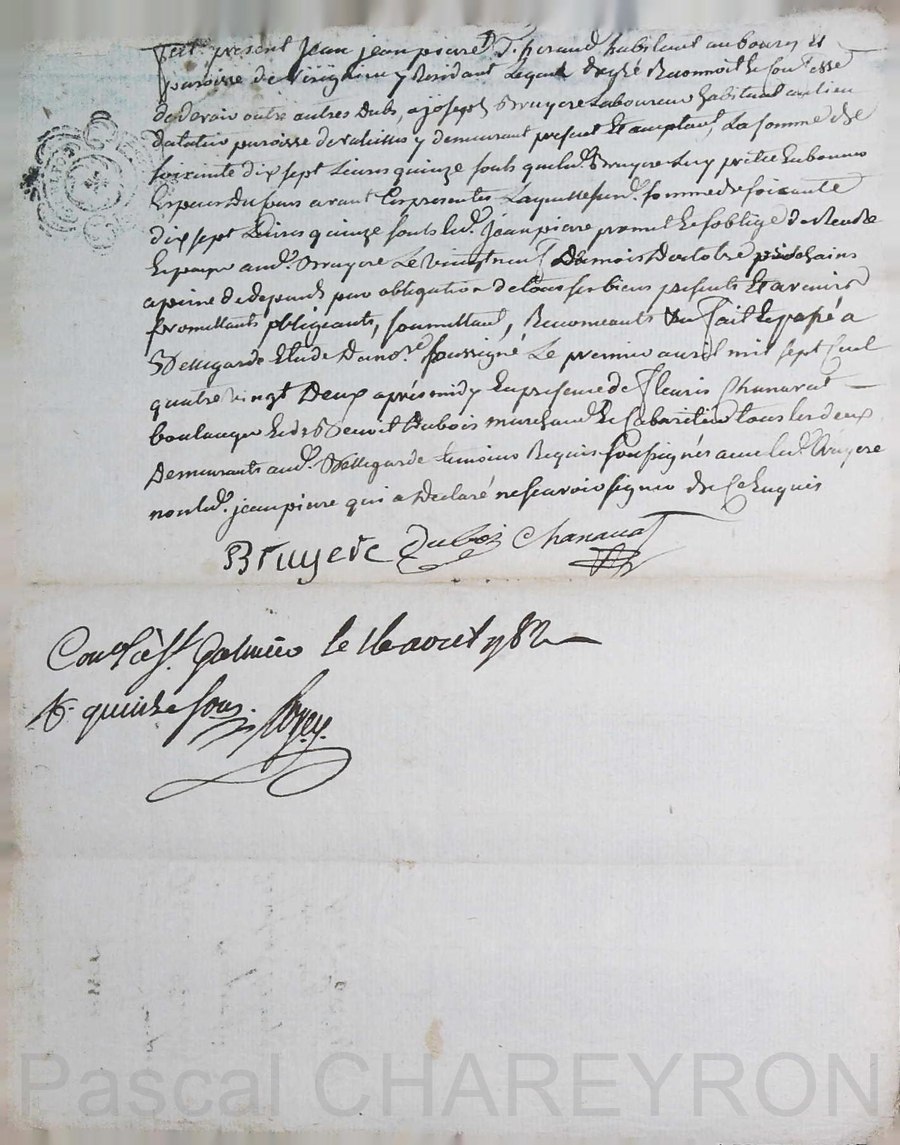 Fut present Jean jeanpierre D. T. heraud habitant au bourg et
paroisse de Virignieu y Residant Lequel de gré Reconnoit et confesse
de devoir outre autres dubs, a joseph Bruyere Laboureur habitant au lieu
paroisse de y demeurant present et acceptant, La somme de
soixante dix sept Livres quinze souls que led. Bruyere Luy prêtée en bonnes
Especes du jours avant les presentes Laquelle susd. somme de soixante
dix sept Livres quinze souls led. jeanpierre promet Et soblige de Rendre
Et payer aud. Bruyere Le vingt neuf du mois doctobre prochains
a peine de depends par obligation de tous ses biens presents Et avenirs
promettants obligeants, soumettant, Renonceants &a Fait Et passé a
Bellegarde Etude du nore. soussigné Le premier avril mil sept Cent
quatre vingt Deux après midy En presence de Fleuris Chanavat
boulanger Et de Benoit Dubois marchand Et Cabaretier tous les deux
Demeurants aud. Bellegarde temoins Requis soussignés avec led. Bruyere
non led. jeanpierre qui a declaré ne scavoir signer de ce Enquis
Bruyere Dubois Chanavat
Conlé à St. Galmier le 16 avril 1782
R. quinze sous.
Pascal CHAREYRON